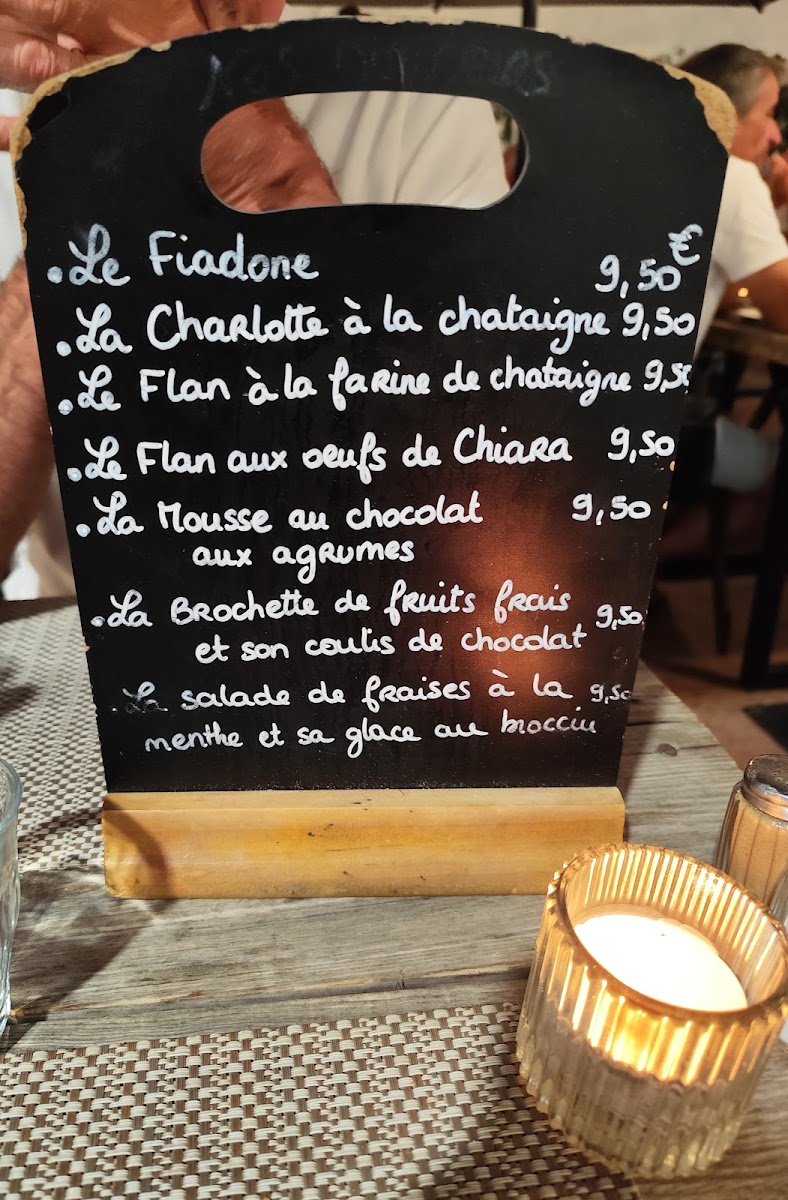 .Le Fiadone 9,50€
.La Charlotte à la chataigne 9,50
.Le Flan à la farine de chataigne 9,50
.Le Flan aux oeufs de Chiara 9,50
.La Mousse au chocolat 9,50
aux agrumes
.La Brochette de fruits frais 9,50
et son coulis de chocolat
.La salade de fraises à la 9,50
menthe et sa glace au brocciu